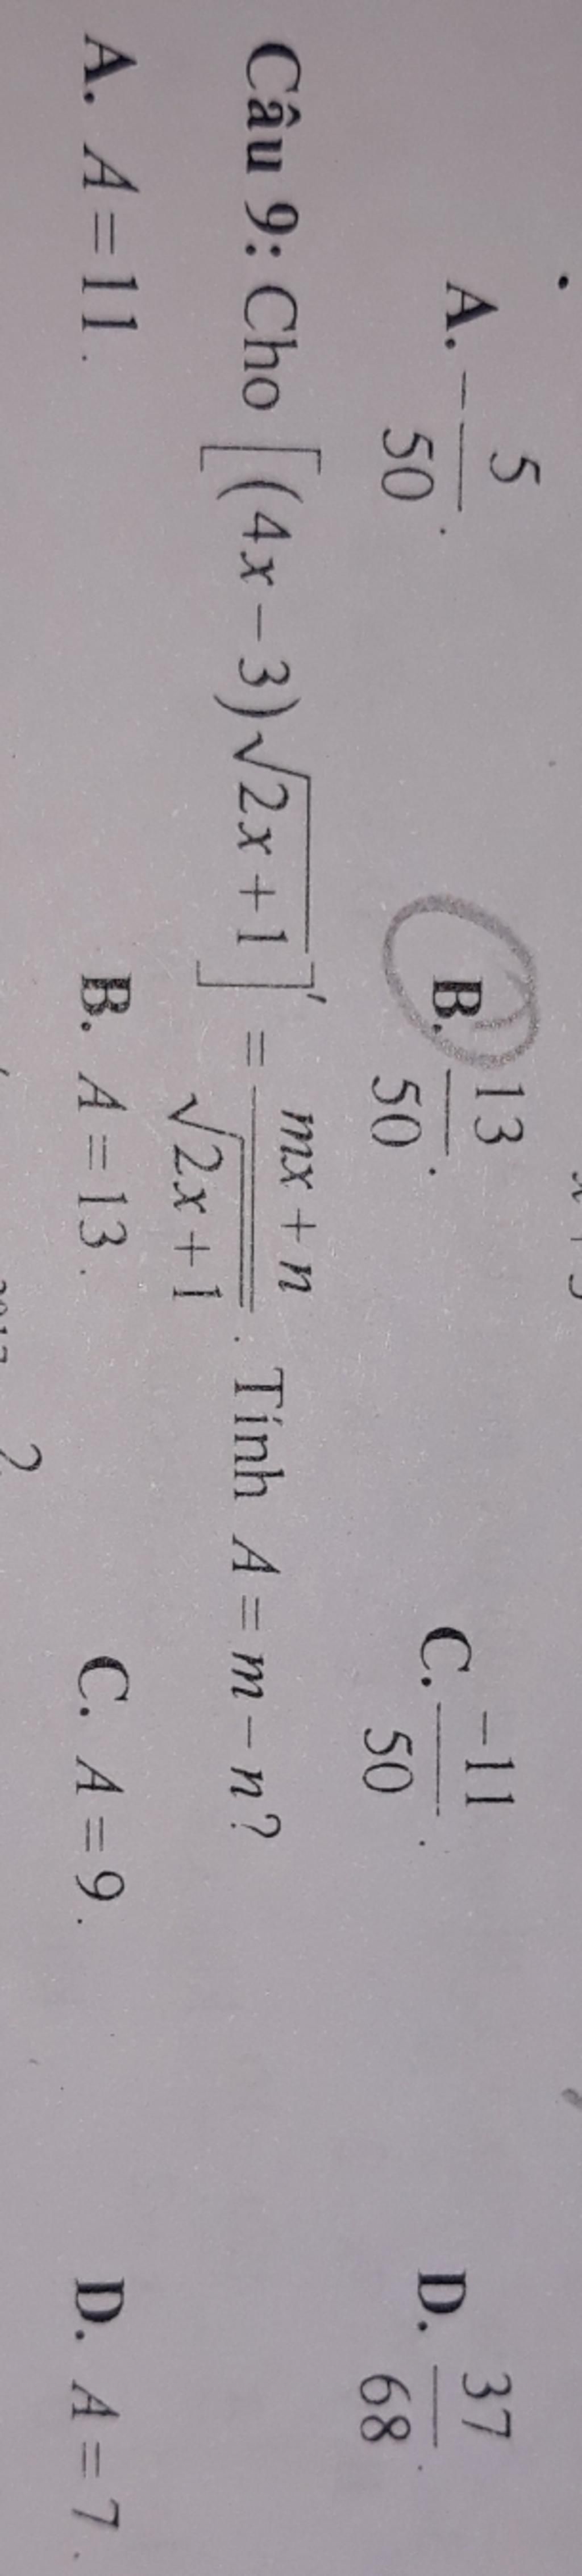 A. -5/50. B. 13/50. C. -11/50. D. 37/68.
Câu 9: Cho [(4x-3)√(2x+1)]' = (mx+n)/√(2x+1). Tính A=m-n?
A. A=11. B. A=13. C. A=9. D. A=7.